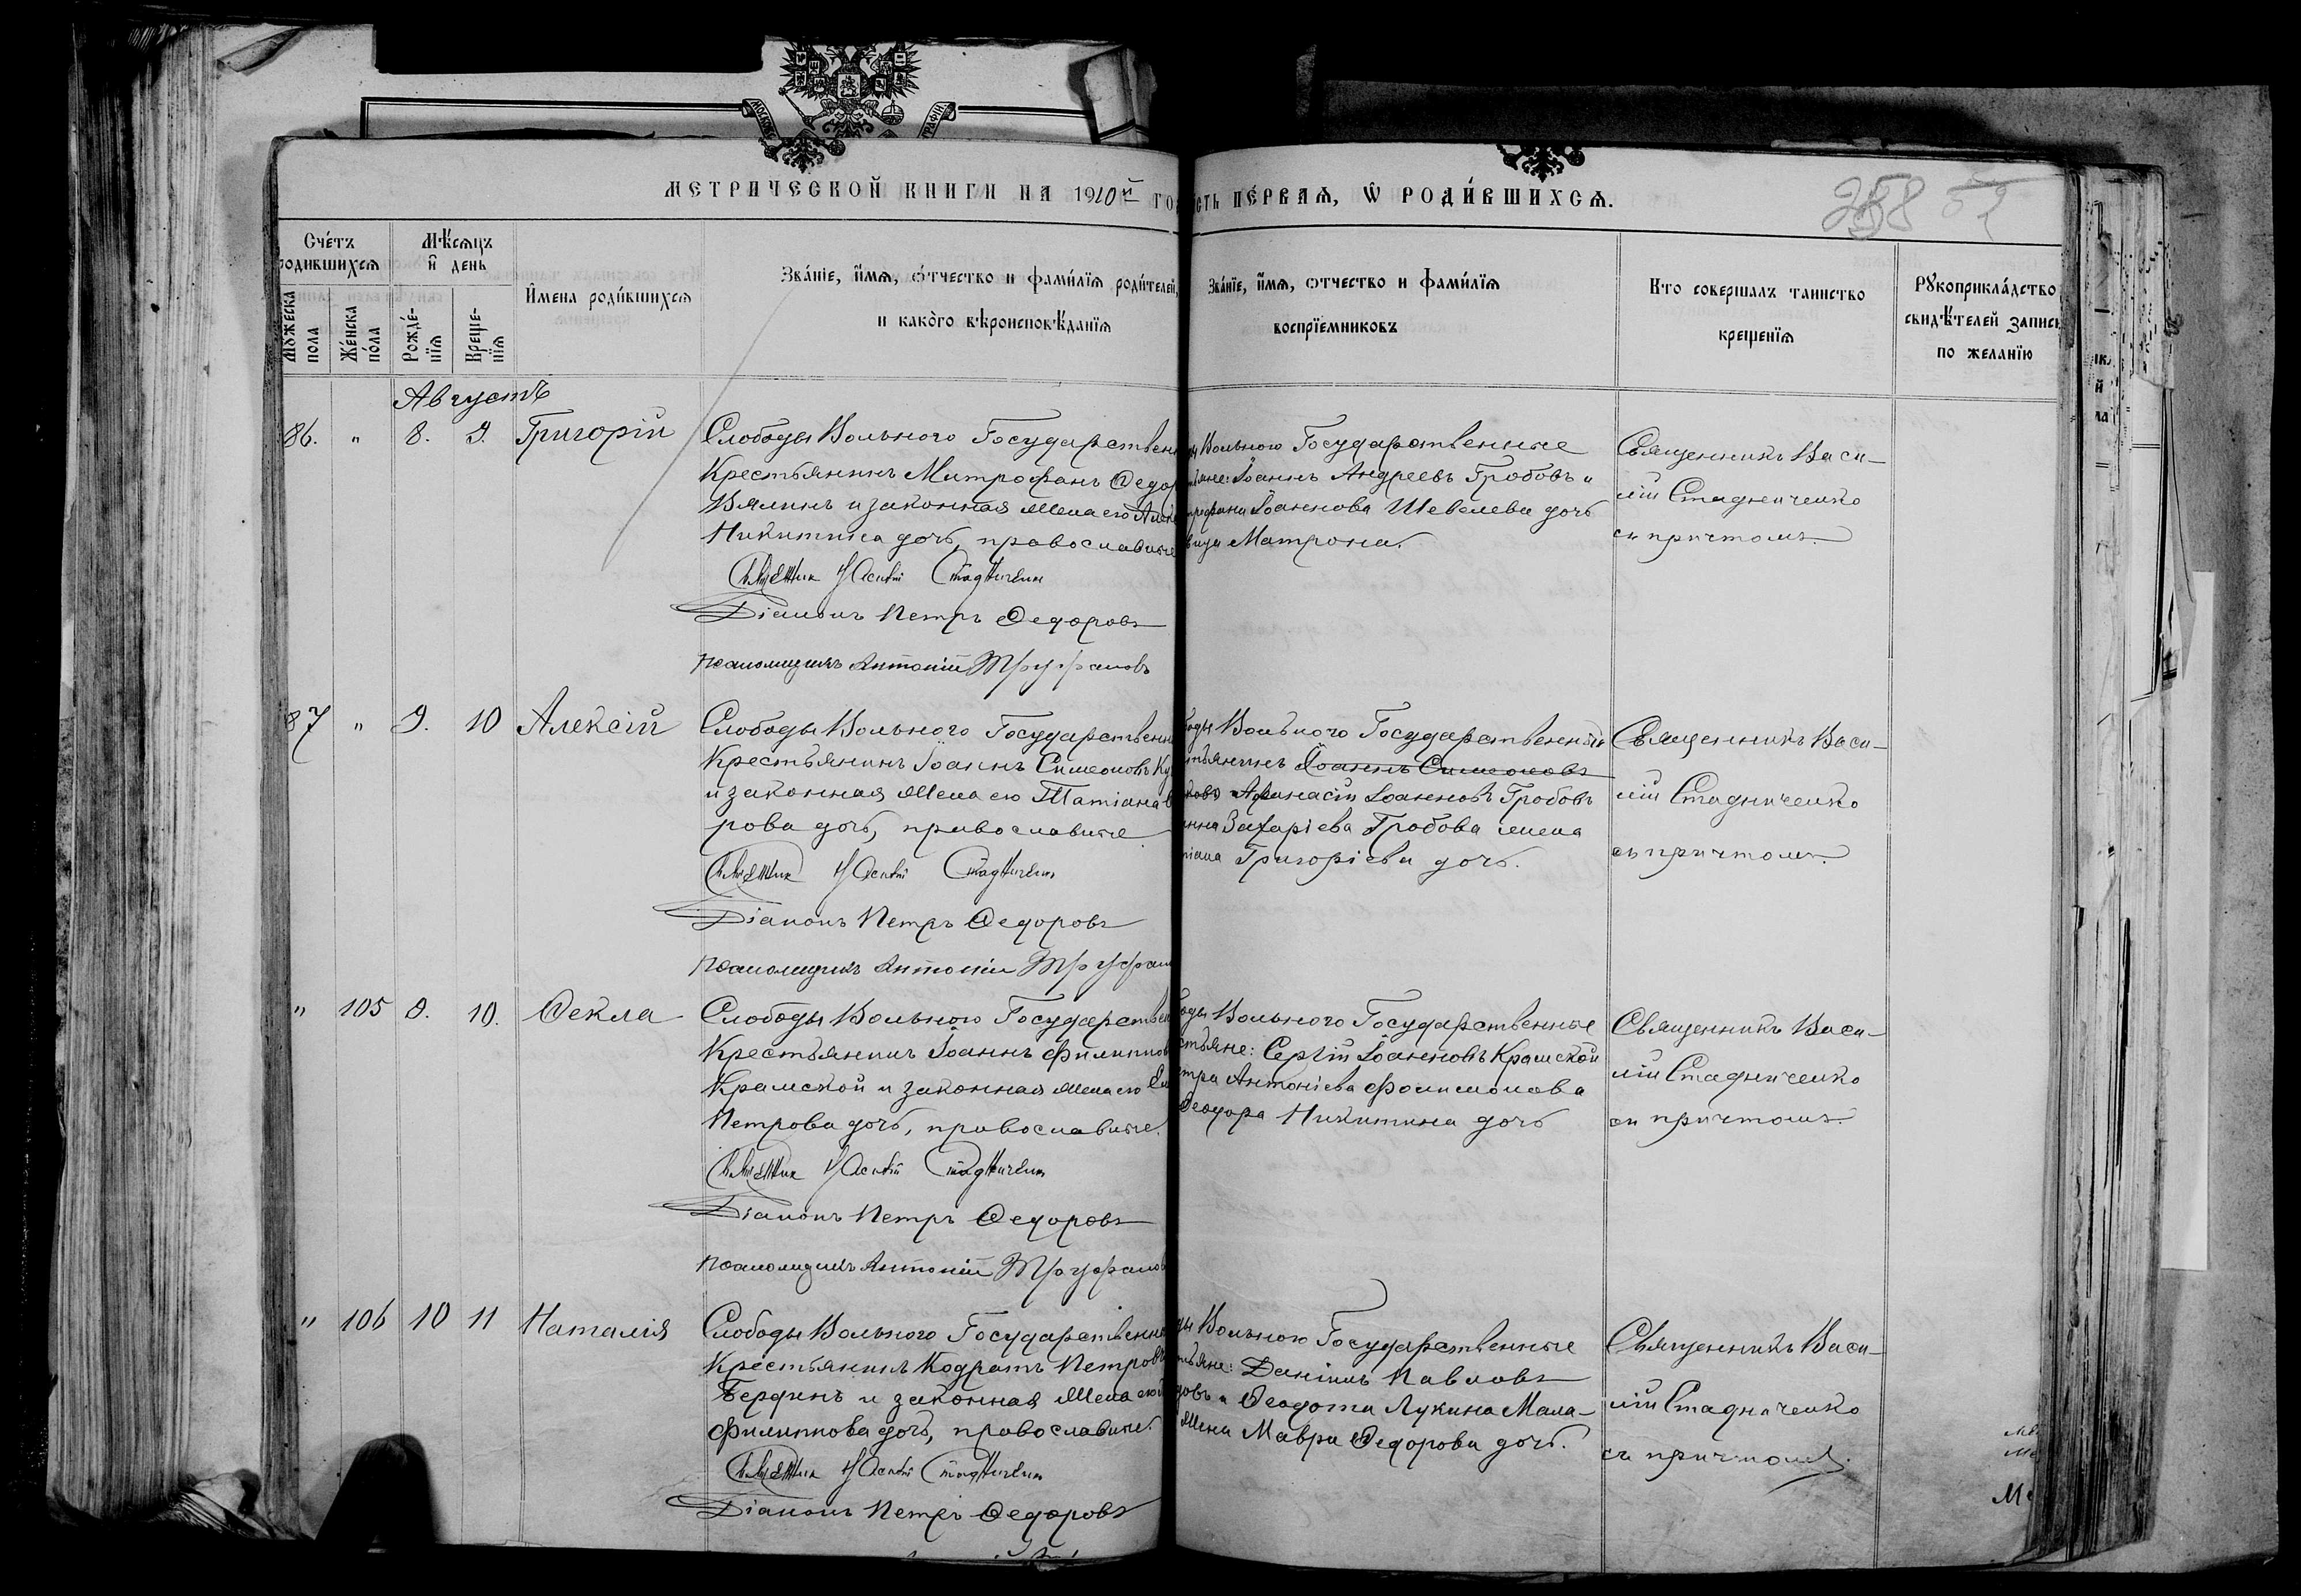 МЕТРИЧЕСКОЙ КНИГИ НА 1910й ГО
СТЬ ПЕ́РВАѦ, Ѡ РОДИ́ВШИХСѦ.
288
Сче́тъ
родившихсѧ
Мѣ́сѧцъ
и҆ день
Мꙋжеска
пола
Же́нска
по́ла
Рожде́-
нїѧ
Креще-
нїѧ
И҆мена роди́вшихсѧ
Зва́нїе, и҆́мѧ, ѻ҆́тчество и фами́лїѧ роди́телей,
и како́го вѣроисповѣ́данїѧ
Зва́нїе, и҆́мѧ, ѻтчество и фами́лїѧ
воспрїемниковъ
Кто совершалъ таинство
крещенїѧ
Рꙋкоприкла́дство
свидѣ́телей запис
по желанїю
Августъ
86. " 8. 9. Григорій
Слободы Вольного Государствен
Крестьянинъ Митрофанъ Ѳедор
Вялинъ и законная жена его
Никитина дочь, православные
Священник Василій Стадниченко
Діаконъ Петръ Ѳедоровъ
Псаломщикъ Антоній Труфановъ
Вольного Государственные
Іоаннъ Андреевъ Гробовъ и
Іоаннова Шевелева дочь
вица Матрона.
Священникъ Васи-
лій Стадниченко
съ причтомъ.
87 " 9. 10 Алексій
Слободы Вольного Государственн
Крестьянинъ Іоаннъ Симеоновъ
и законная жена его Татіана
рова дочь, православные
Священник Василій Стадниченко
Діаконъ Петръ Ѳедоровъ
Псаломщикъ Антоній Труфан
оды Вольного Государственный
стьянинъ Іоаннъ Симеоновъ
Афанасій Іоанновъ Гробовъ
Захаріева Гробова жена
Григоріева дочь.
Священникъ Васи-
лій Стадниченко
съ причтомъ.
" 105 9. 10. Ѳекла
Слободы Вольного Государствен
Крестьянинъ Іоаннъ Филиппов
Крамской и законная жена его
Петрова дочь, православные.
Священник Василій Стадниченко
Діаконъ Петръ Ѳедоровъ
Псаломщикъ Антоній Труфанов
оды Вольного Государственные
стьяне: Сергій Іоанновъ Крамской
Антоніева
Ѳеодора Никитина дочь
Священникъ Васи-
лій Стадниченко
съ причтомъ.
" 106 10 11 Наталія
Слободы Вольного Государственн
Крестьянинъ Кодратъ Петровъ
Бердинъ и законная жена его
Филиппова дочь, православные.
Священник Василій Стадниченко
Діаконъ Петръ Ѳедоровъ
ды Вольного Государственные
стьяне: Даніилъ Павловъ
Ѳеодота Лукина Мала-
жена Мавра Ѳедорова дочь.
Священникъ Васи-
лій Стадниченко
съ причтомъ.